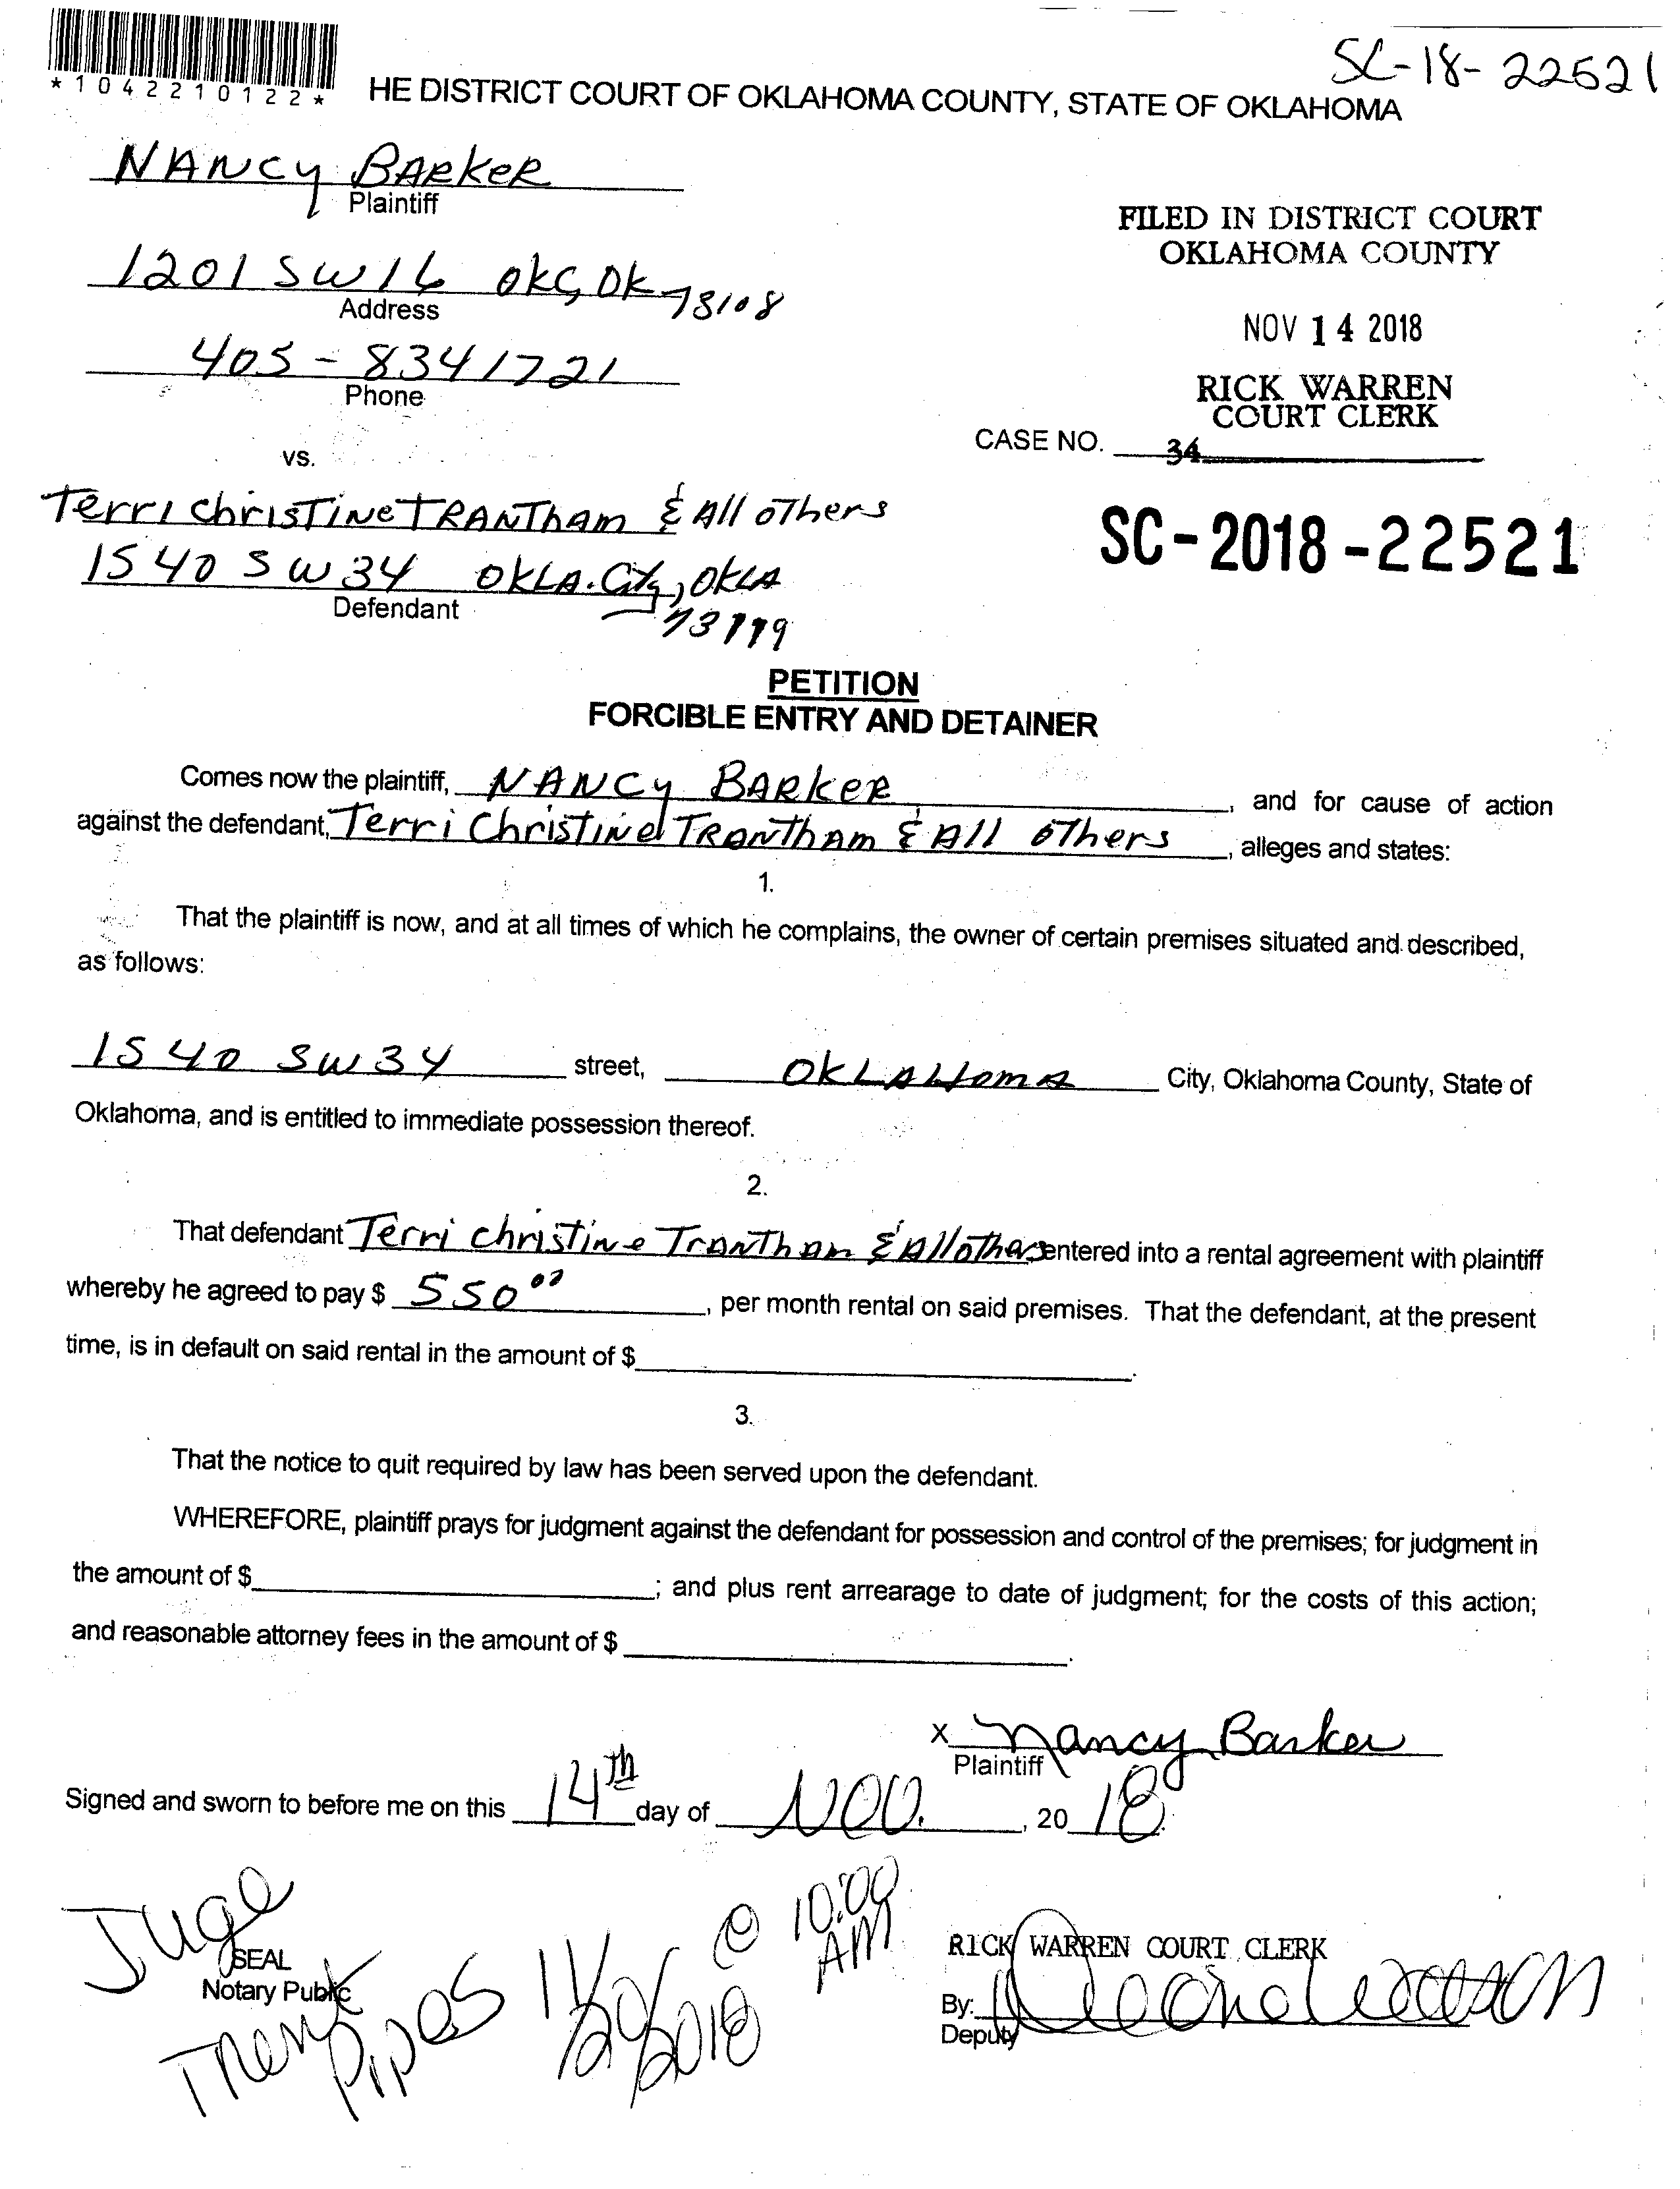 SC-18-22521
*1042210122*
HE DISTRICT COURT OF OKLAHOMA COUNTY, STATE OF OKLAHOMA
NANCY BARKER
Plaintiff
1201 SW 16 OKC, OK 73108
Address
405-8341721
Phone
FILED IN DISTRICT COURT
OKLAHOMA COUNTY
NOV 14 2018
RICK WARREN
COURT CLERK
CASE NO. 34
vs.
Terri Christine TRANTham & All others
SC-2018-22521
1540 SW 34 OKLA. City, OKLA
Defendant
73119
PETITION
FORCIBLE ENTRY AND DETAINER
Comes now the plaintiff, NANCY BARKER, and for cause of action
against the defendant, Terri Christine TRANTham & All others, alleges and states:
1.
That the plaintiff is now, and at all times of which he complains, the owner of certain premises situated and described,
as follows:
1540 SW 34 street, OKLAHOMA City, Oklahoma County, State of
Oklahoma, and is entitled to immediate possession thereof.
2.
That defendant Terri Christine Trantham & All others entered into a rental agreement with plaintiff
whereby he agreed to pay $ 550.00, per month rental on said premises. That the defendant, at the present
time, is in default on said rental in the amount of $ .
3.
That the notice to quit required by law has been served upon the defendant.
WHEREFORE, plaintiff prays for judgment against the defendant for possession and control of the premises; for judgment in
the amount of $ ; and plus rent arrearage to date of judgment; for the costs of this action;
and reasonable attorney fees in the amount of $ .
X Nancy Barker
Plaintiff
Signed and sworn to before me on this 14th day of NOV., 20 18.
Juge
SEAL
Notary Public
Trent Pipes 11/20/2018 @ 10:00 AM
RICK WARREN COURT CLERK
By:
Deputy